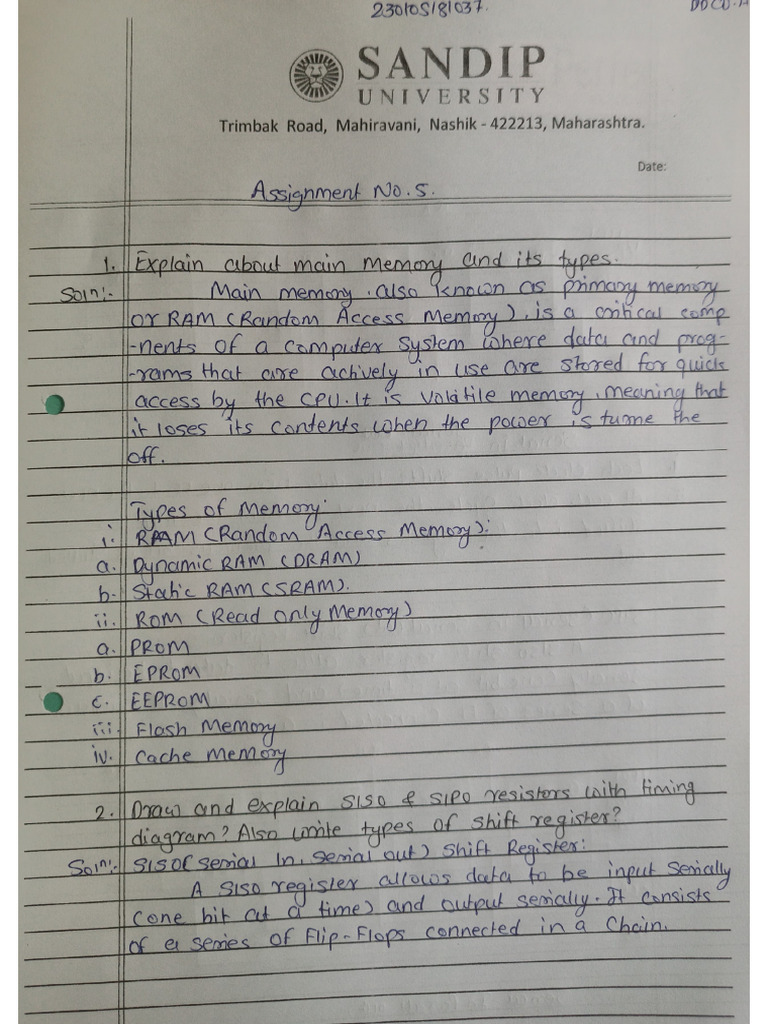 230105181037.
SANDIP
UNIVERSITY
Trimbak Road, Mahiravani, Nashik - 422213, Maharashtra.
Date:
Assignment No. 5.
1. Explain about main memory and its types.
Soln:- Main memory, also known as primary memory
or RAM (Random Access Memory), is a critical comp
-nents of a computer system where data and prog-
-rams that are actively in use are stored for quick
access by the CPU. It is volatile memory, meaning that
it loses its contents when the power is turne the
off.
Types of Memory:
i. RAM (Random Access Memory):
a. Dynamic RAM (DRAM)
b. Static RAM (SRAM).
ii. ROM (Read Only Memory)
a. PROM
b. EPROM
c. EEPROM
iii. Flash Memory
iv. Cache Memory
2. Draw and explain SISO & SIPO resistors with timing
diagram? Also write types of shift register?
Soln:- SISO (serial In, serial out) Shift Register:
A SISO register allows data to be input serially
(one bit at a time) and output serially. It consists
of a series of Flip-Flops connected in a Chain.